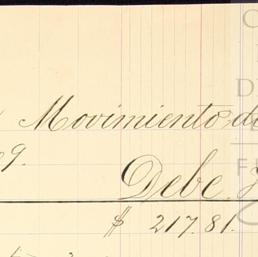 Movimiento d
9.
Debe
$ 217.81.